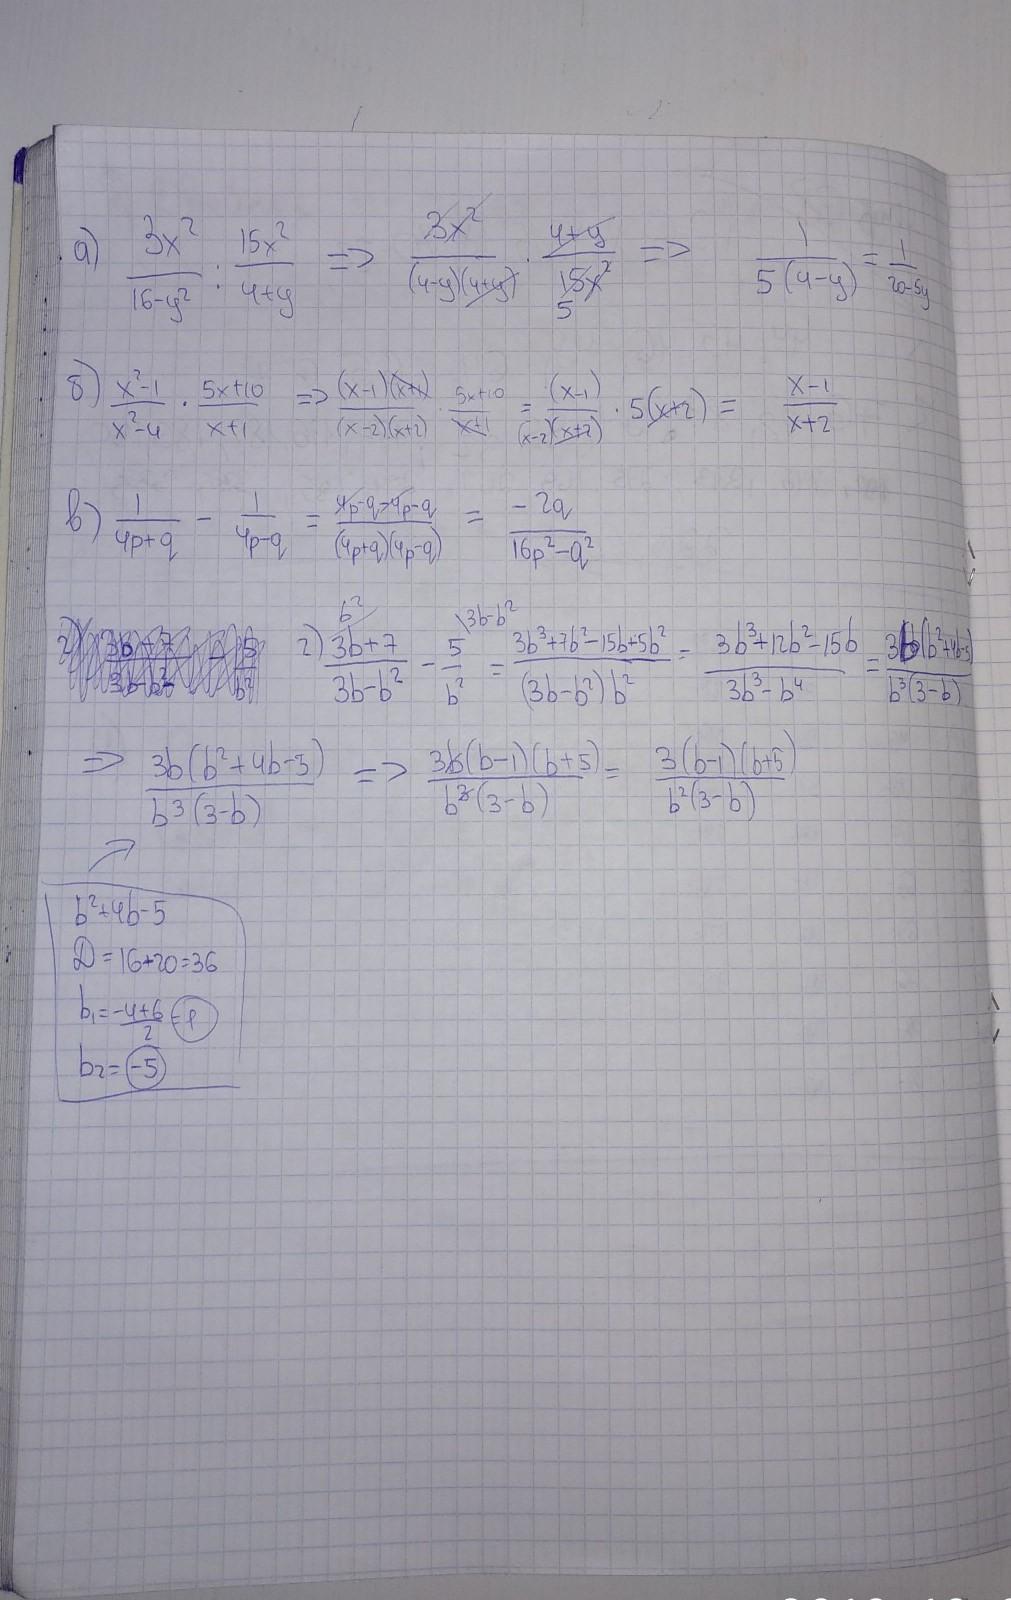 а) 3x²/(16-y²) : 15x²/(4+y) => 3x²/((4-y)(4+y)) · (4+y)/(15x²) 5 => 1/(5(4-y)) = 1/(20-5y)
б) (x²-1)/(x²-4) · (5x+10)/(x+1) => ((x-1)(x+1))/((x-2)(x+2)) · (5x+10)/(x+1) = (x-1)/((x-2)(x+2)) · 5(x+2) = (x-1)/(x+2)
в) 1/(4p+q) - 1/(4p-q) = (4p-q-4p-q)/((4p+q)(4p-q)) = -2q/(16p²-q²)
г) (3b+7)/(3b-b²) \b² - 5/b² \3b-b² = (3b³+7b²-15b+5b²)/((3b-b²)b²) = (3b³+12b²-15b)/(3b³-b⁴) = 3b(b²+4b-5)/(b³(3-b))
=> 3b(b²+4b-5)/(b³(3-b)) => 3b(b-1)(b+5)/(b³(3-b)) = 3(b-1)(b+5)/(b²(3-b))
b²+4b-5
D=16+20=36
b₁=(-4+6)/2=1
b₂=-5